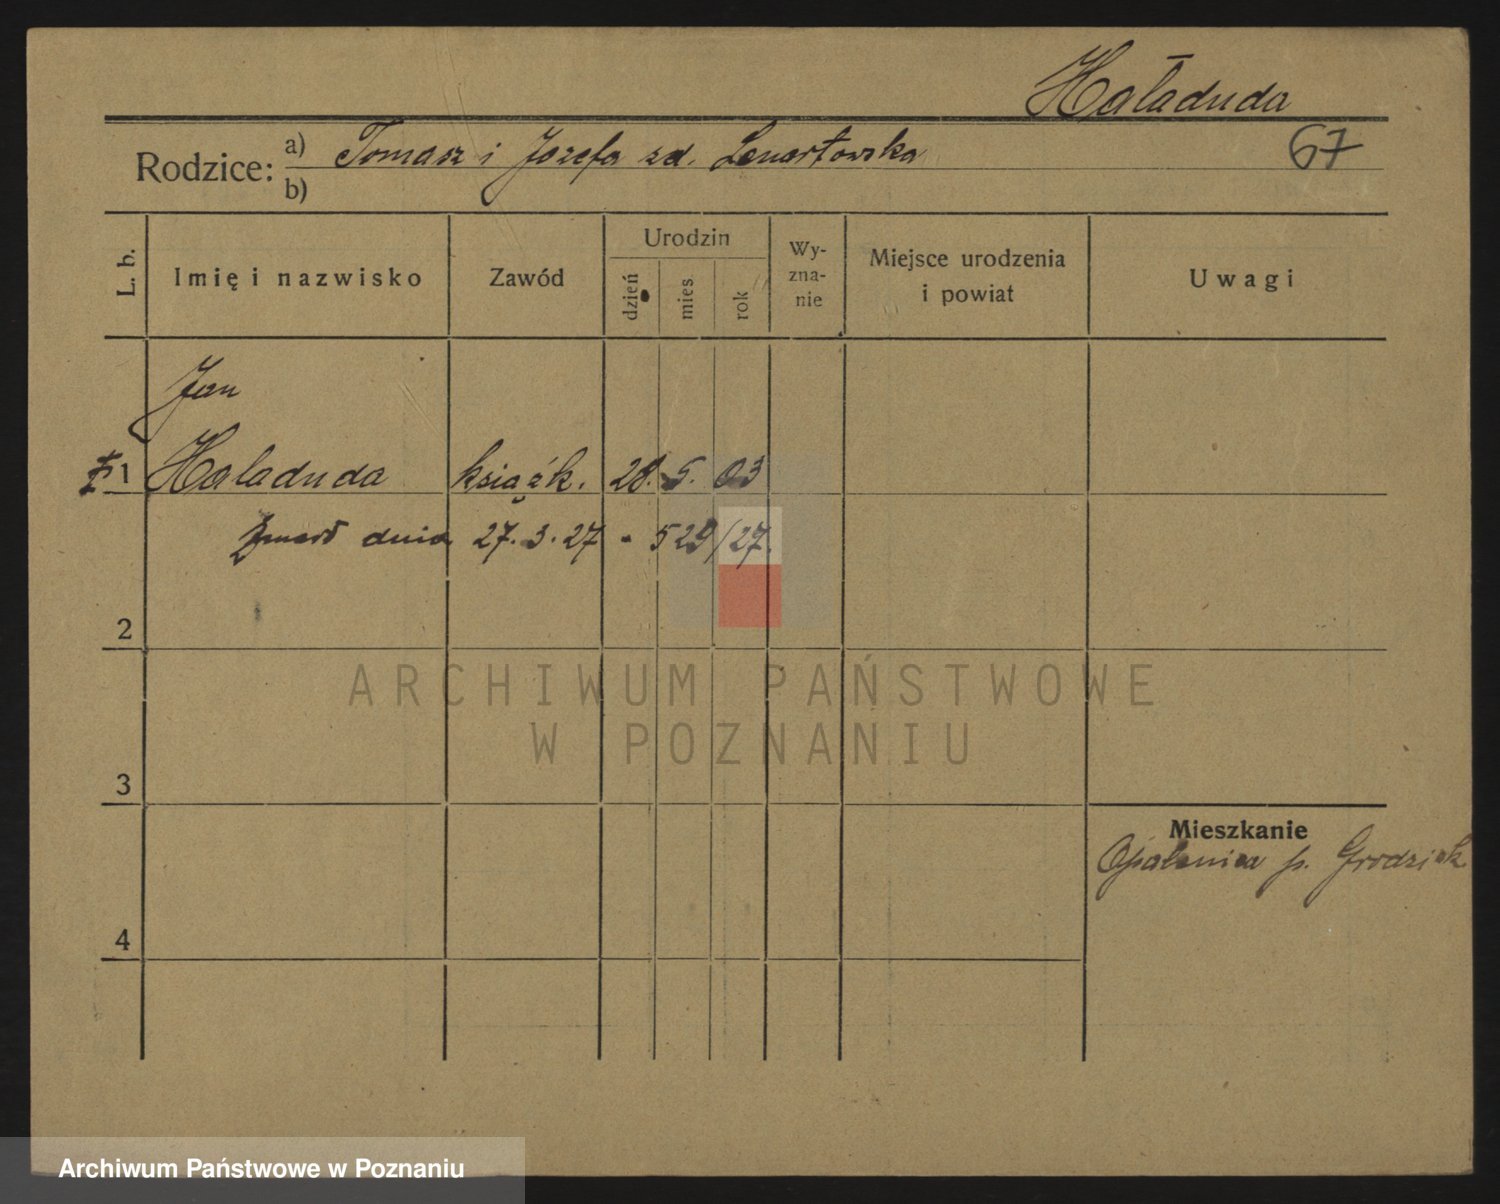 Haładuda
67
Rodzice: a) Tomasz i Józefa zd. Lenartowska
b)
L. b.
Imię i nazwisko
Zawód
Urodzin
dzień
mies.
rok
Wy-
zna-
nie
Miejsce urodzenia
i powiat
Uwagi
Jan
1 Haladuda książk. 28. 5. 03
Zmarł dnia 27. 3. 27 - 529/27.
2
ARCHIWUM PAŃSTWOWE
W POZNANIU
3
Mieszkanie
Opalenica p. Grodzisk
4
Archiwum Państwowe w Poznaniu